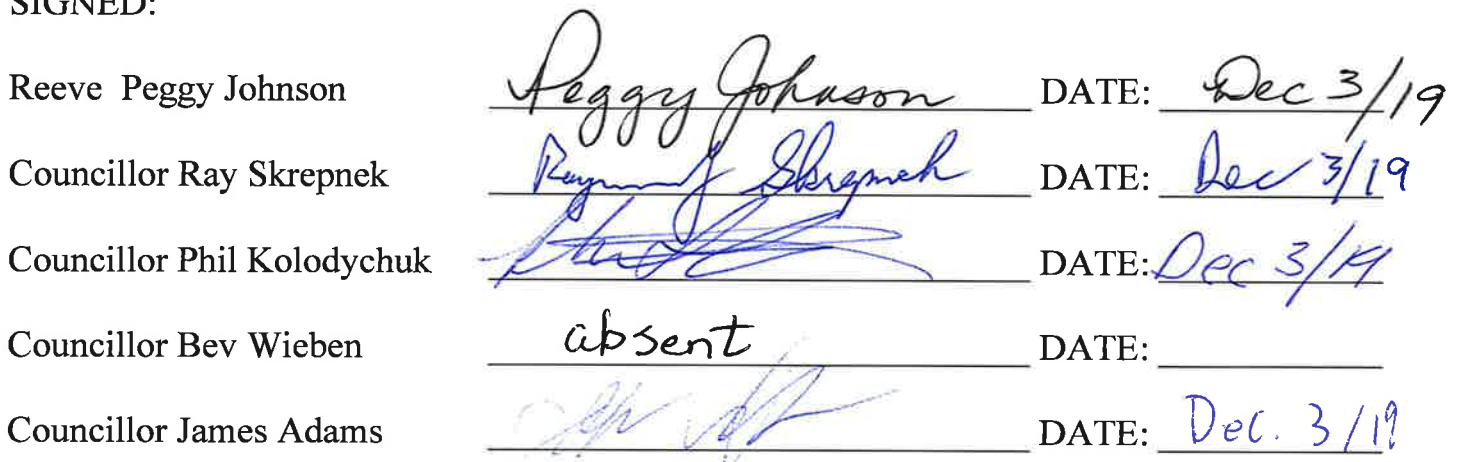 SIGNED:
Reeve Peggy Johnson Peggy Johnson DATE: Dec 3/19
Councillor Ray Skrepnek Raymond Skrepnek DATE: Dec 3/19
Councillor Phil Kolodychuk DATE: Dec 3/19
Councillor Bev Wieben absent DATE:
Councillor James Adams DATE: Dec. 3/19